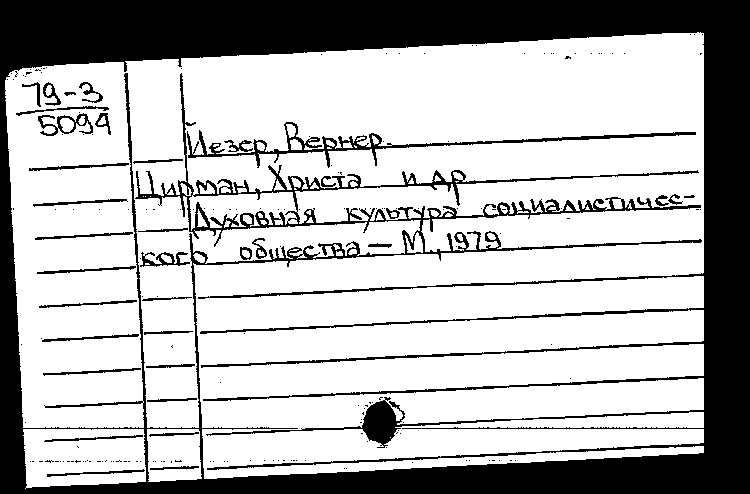 79-3
5094
Йезер, Вернер.
Цирман, Христа и др
Духовная культура социалистичес-
кого общества.— М., 1979